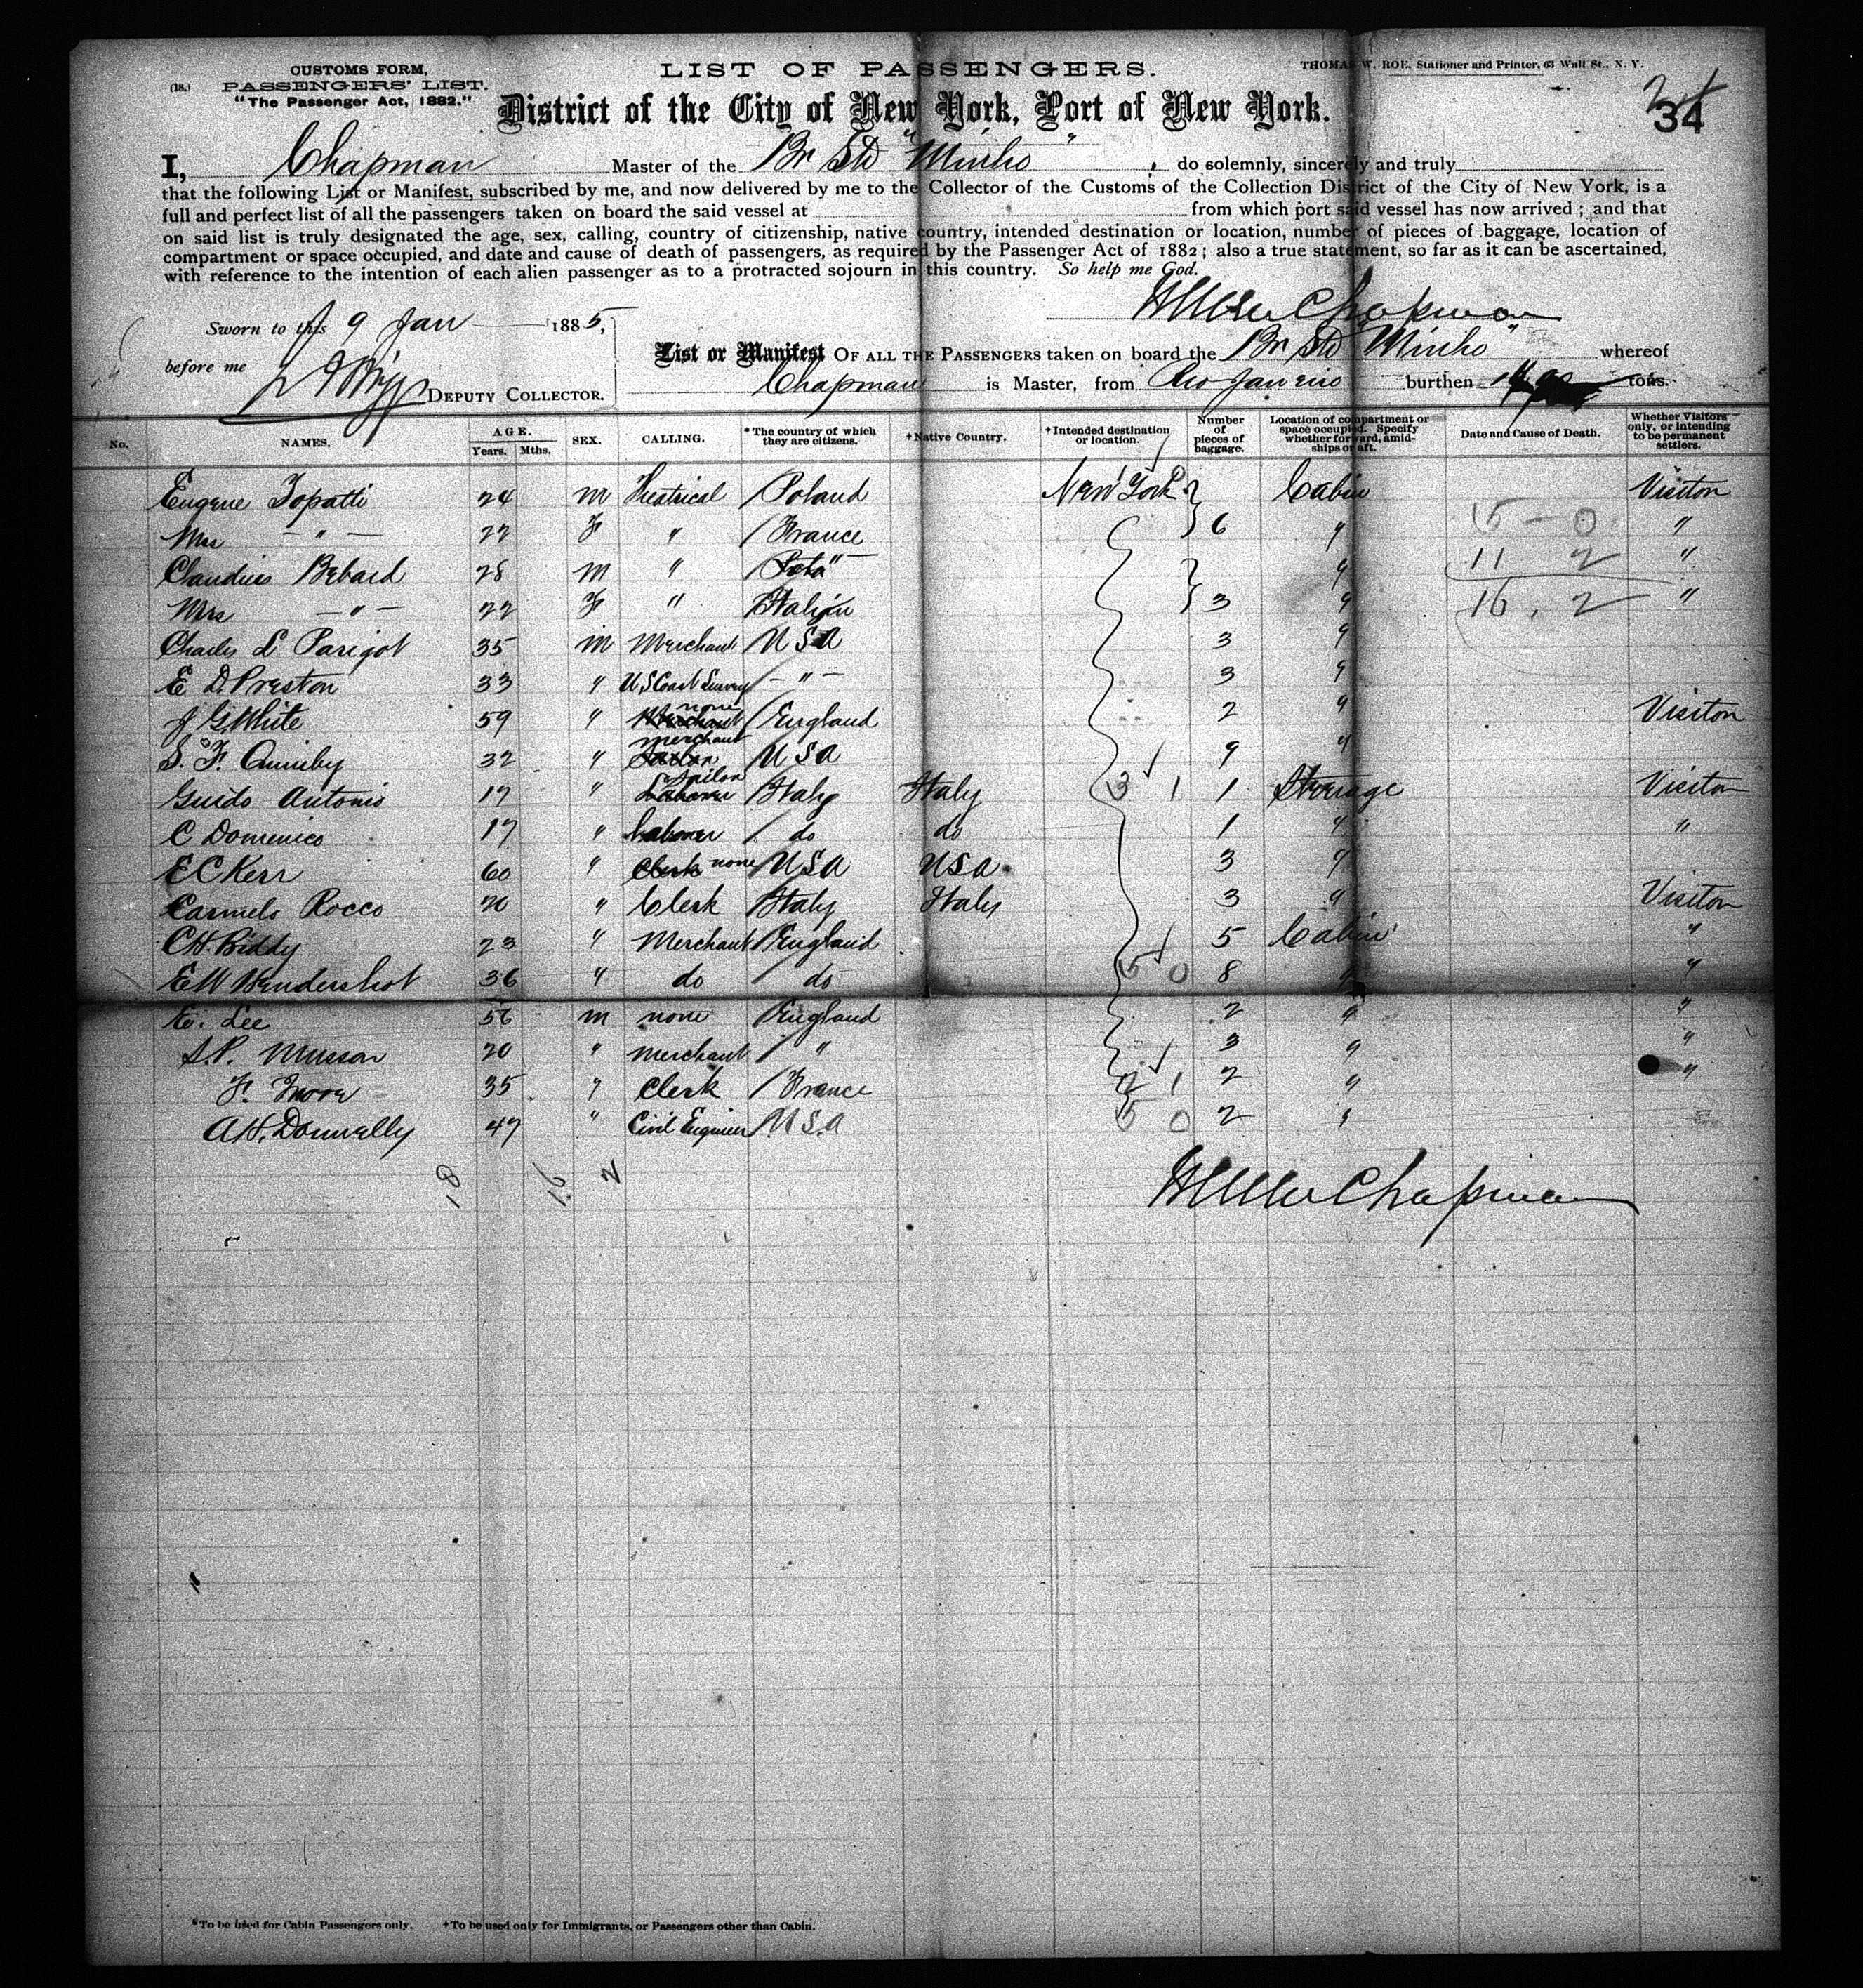 CUSTOMS FORM,
(18.) PASSENGERS' LIST.
"The Passenger Act, 1882."
LIST OF PASSENGERS.
THOMAS W. ROE, Stationer and Printer, 63 Wall St., N. Y.
District of the City of New York, Port of New York.
34
I, Chapman Master of the Br Str "Minho", do solemnly, sincerely and truly
that the following List or Manifest, subscribed by me, and now delivered by me to the Collector of the Customs of the Collection District of the City of New York, is a
full and perfect list of all the passengers taken on board the said vessel at from which port said vessel has now arrived; and that
on said list is truly designated the age, sex, calling, country of citizenship, native country, intended destination or location, number of pieces of baggage, location of
compartment or space occupied, and date and cause of death of passengers, as required by the Passenger Act of 1882; also a true statement, so far as it can be ascertained,
with reference to the intention of each alien passenger as to a protracted sojourn in this country. So help me God.
Chapman
Sworn to this 9 Jan 1885,
before me
DEPUTY COLLECTOR.
List or Manifest OF ALL THE PASSENGERS taken on board the Br Str "Minho" whereof
Chapman is Master, from Rio Janeiro burthen tons.
No. NAMES. AGE. Years. Mths. SEX. CALLING. *The country of which they are citizens. †Native Country. †Intended destination or location. Number of pieces of baggage. Location of compartment or space occupied. Specify whether forward, amidships or aft. Date and Cause of Death. Whether Visitors only, or intending to be permanent settlers.
Eugene Topatti 24 m Theatrical Poland New York Cabin Visitor
Mrs " 22 F " France 6 " 5 - 0 "
Claudius Bebard 28 m " " " 11 2 "
Mrs " 22 F " Italian 3 " 16, 2 "
Charles L Parigot 35 m Merchant USA 3 "
E D. Preston 33 " US Coast Survey " 3 "
J G White 59 " none England 2 " Visitor
S. F. Quimby 32 " merchant USA 9 "
Guido Antonio 17 " Italy Italy 3 1 1 Steerage Visitor
C Domenico 17 " Labourer do do 1 " "
E C Kerr 60 " Clerk none USA USA 3 "
Carmelo Rocco 20 " Clerk Italy Italy 3 " Visitor
C H. Biddy 23 " Merchant England 5 Cabin "
E W Hendershot 36 " do do 5 0 8 " "
E. Lee 56 m none England 2 " "
S. P. Musson 20 " merchant " 3 " "
F. 35 " Clerk France 2 1 2 " "
A H. Donnelly 47 " Civil Engineer U.S.A 5 0 2 "
18 16 2
Chapman
*To be used for Cabin Passengers only. †To be used only for Immigrants, or Passengers other than Cabin.